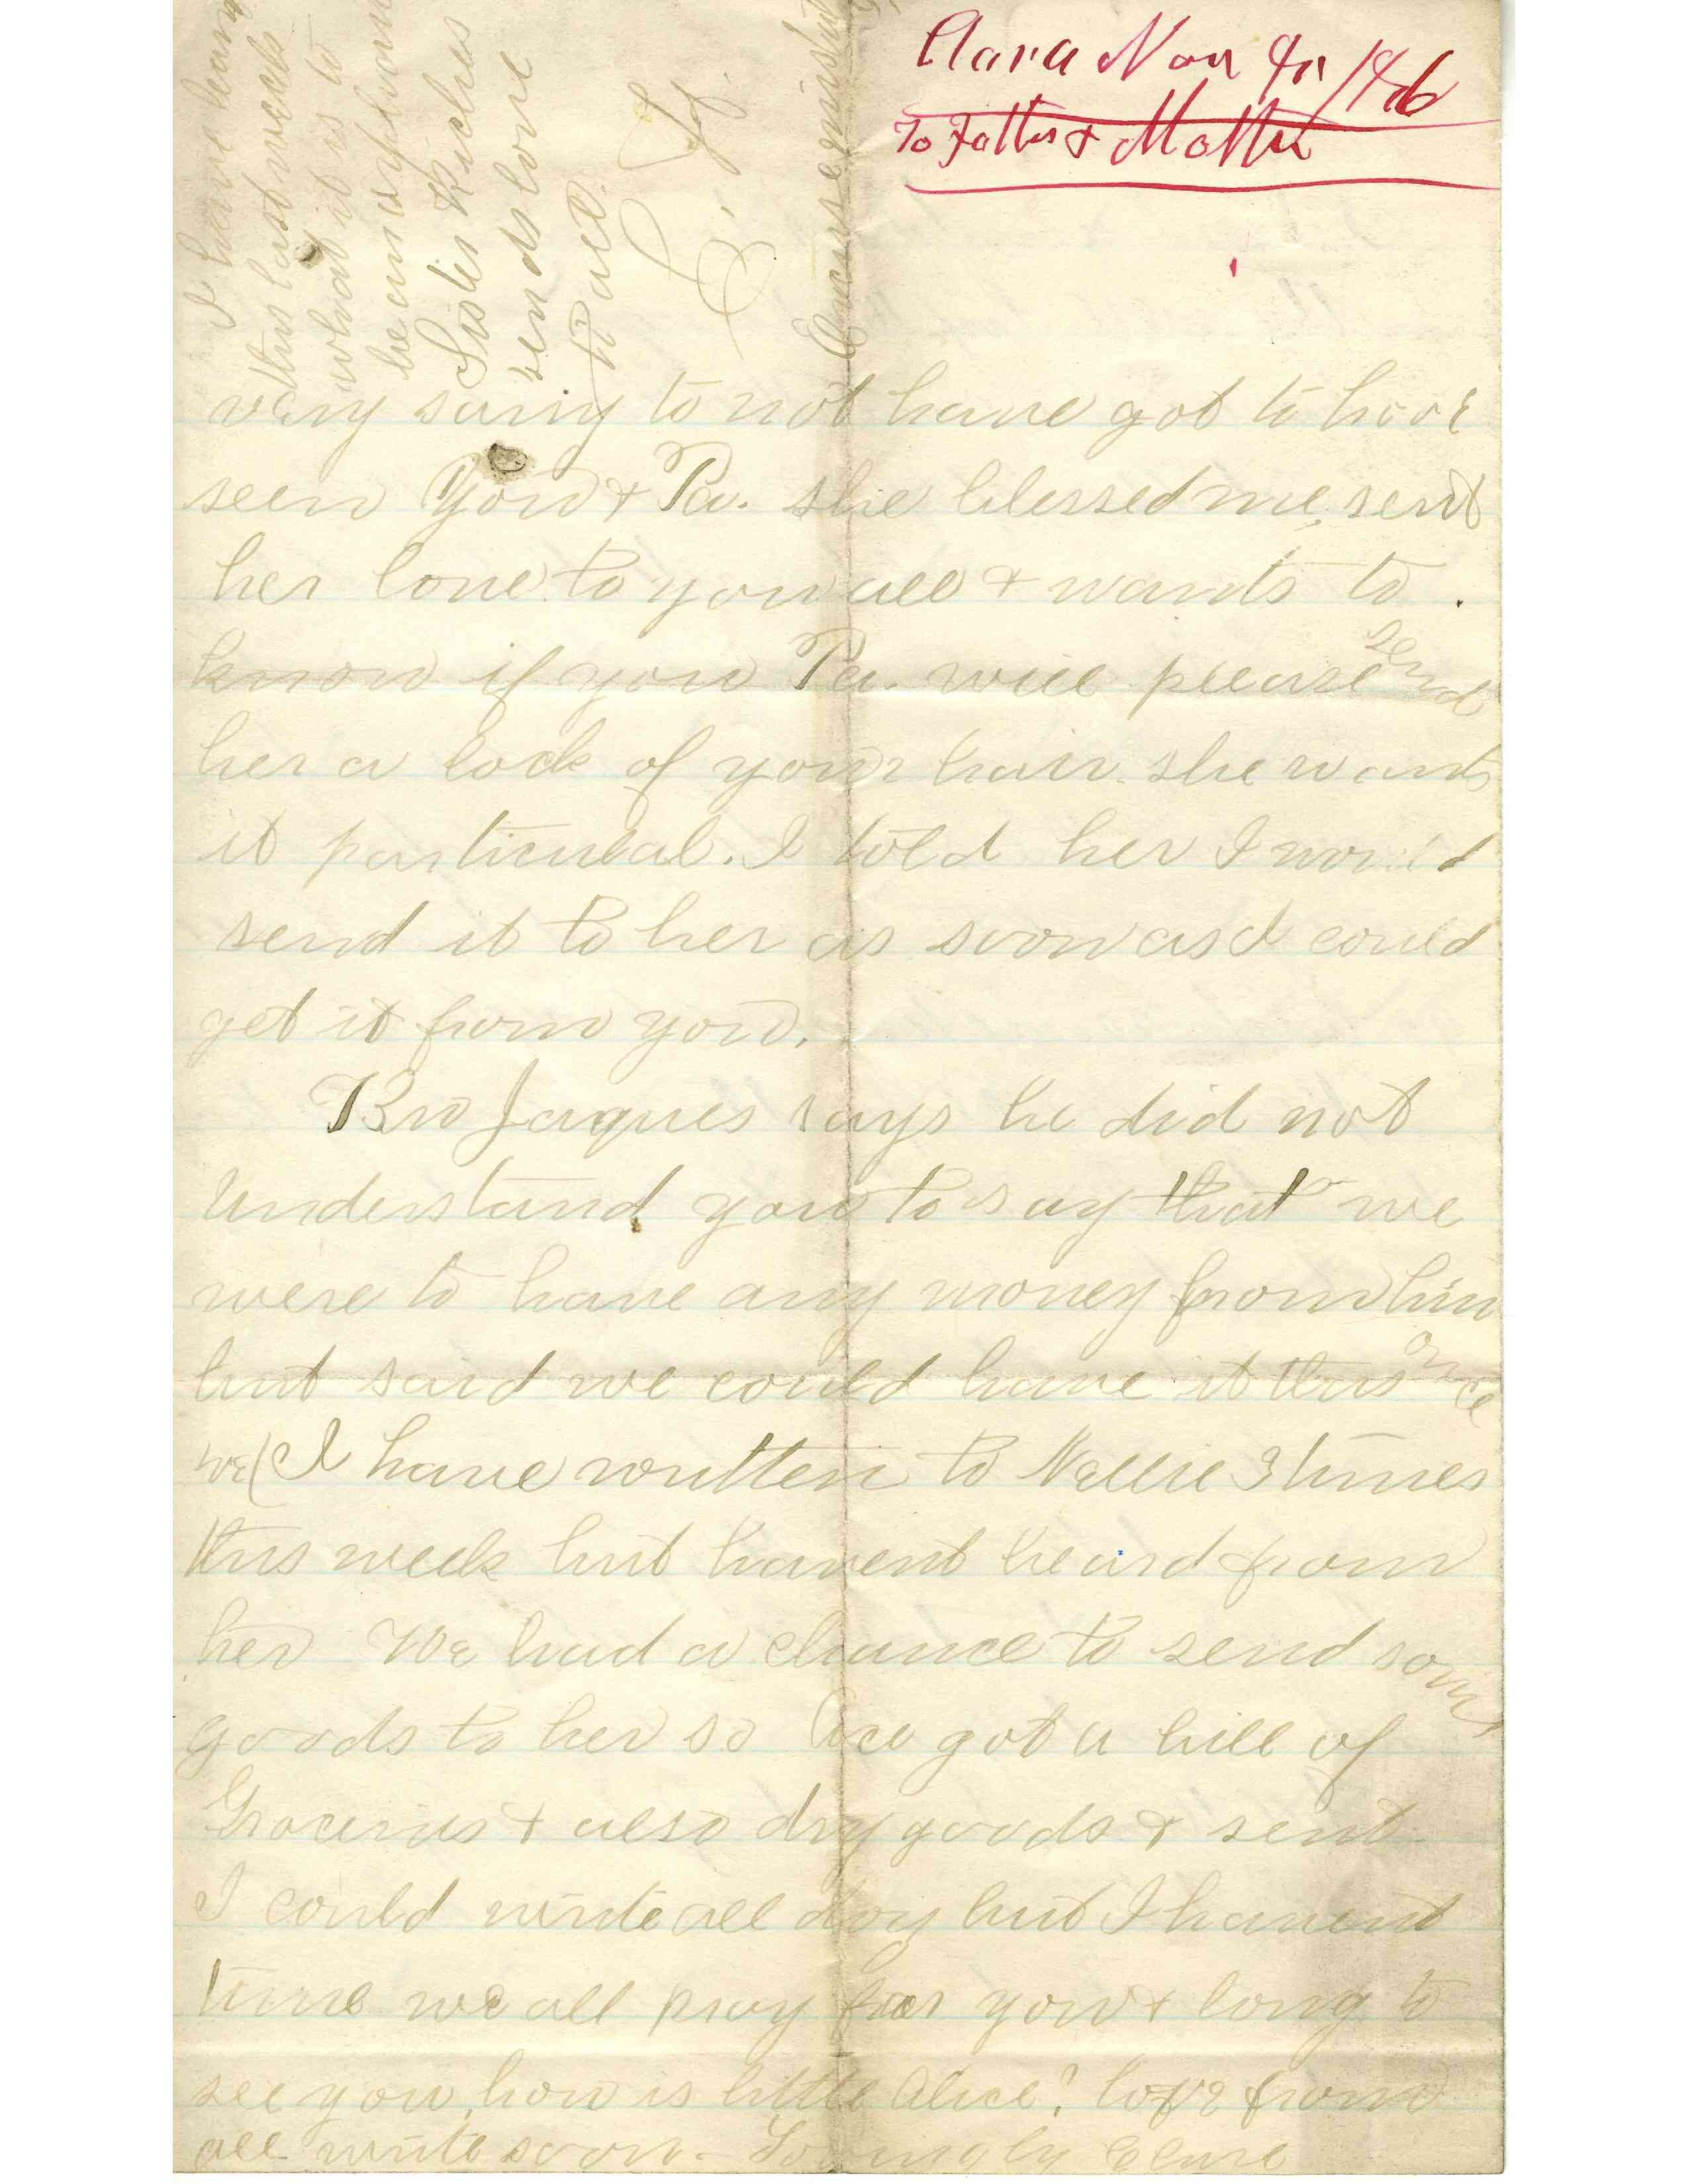 Clara Nov
To Father & Mother
I have learned
this last week
what it is to
be
Sister Riches
sends love
to all.
Excuse mistakes
very sorry to not have got to have
seen you & Pa. she blessed me, sent
her love to you all & wants to
know if you Pa. will please send
her a lock of your hair. she wants
it particulal. I told her I would
send it to her as soon as I could
get it from you.
Bro Jaques says he did not
understand you to say that we
were to have any money from him
but said we could have it this once
we( I have written to Nellie 3 times
this week but havent heard from
her We had a chance to send some
goods to her so we got a bill of
Groceries & also dry goods & sent
I could write all day but I havent
time we all pray for you & long to
see you, how is little Alice? love from
all write soon - Lovingly Clara